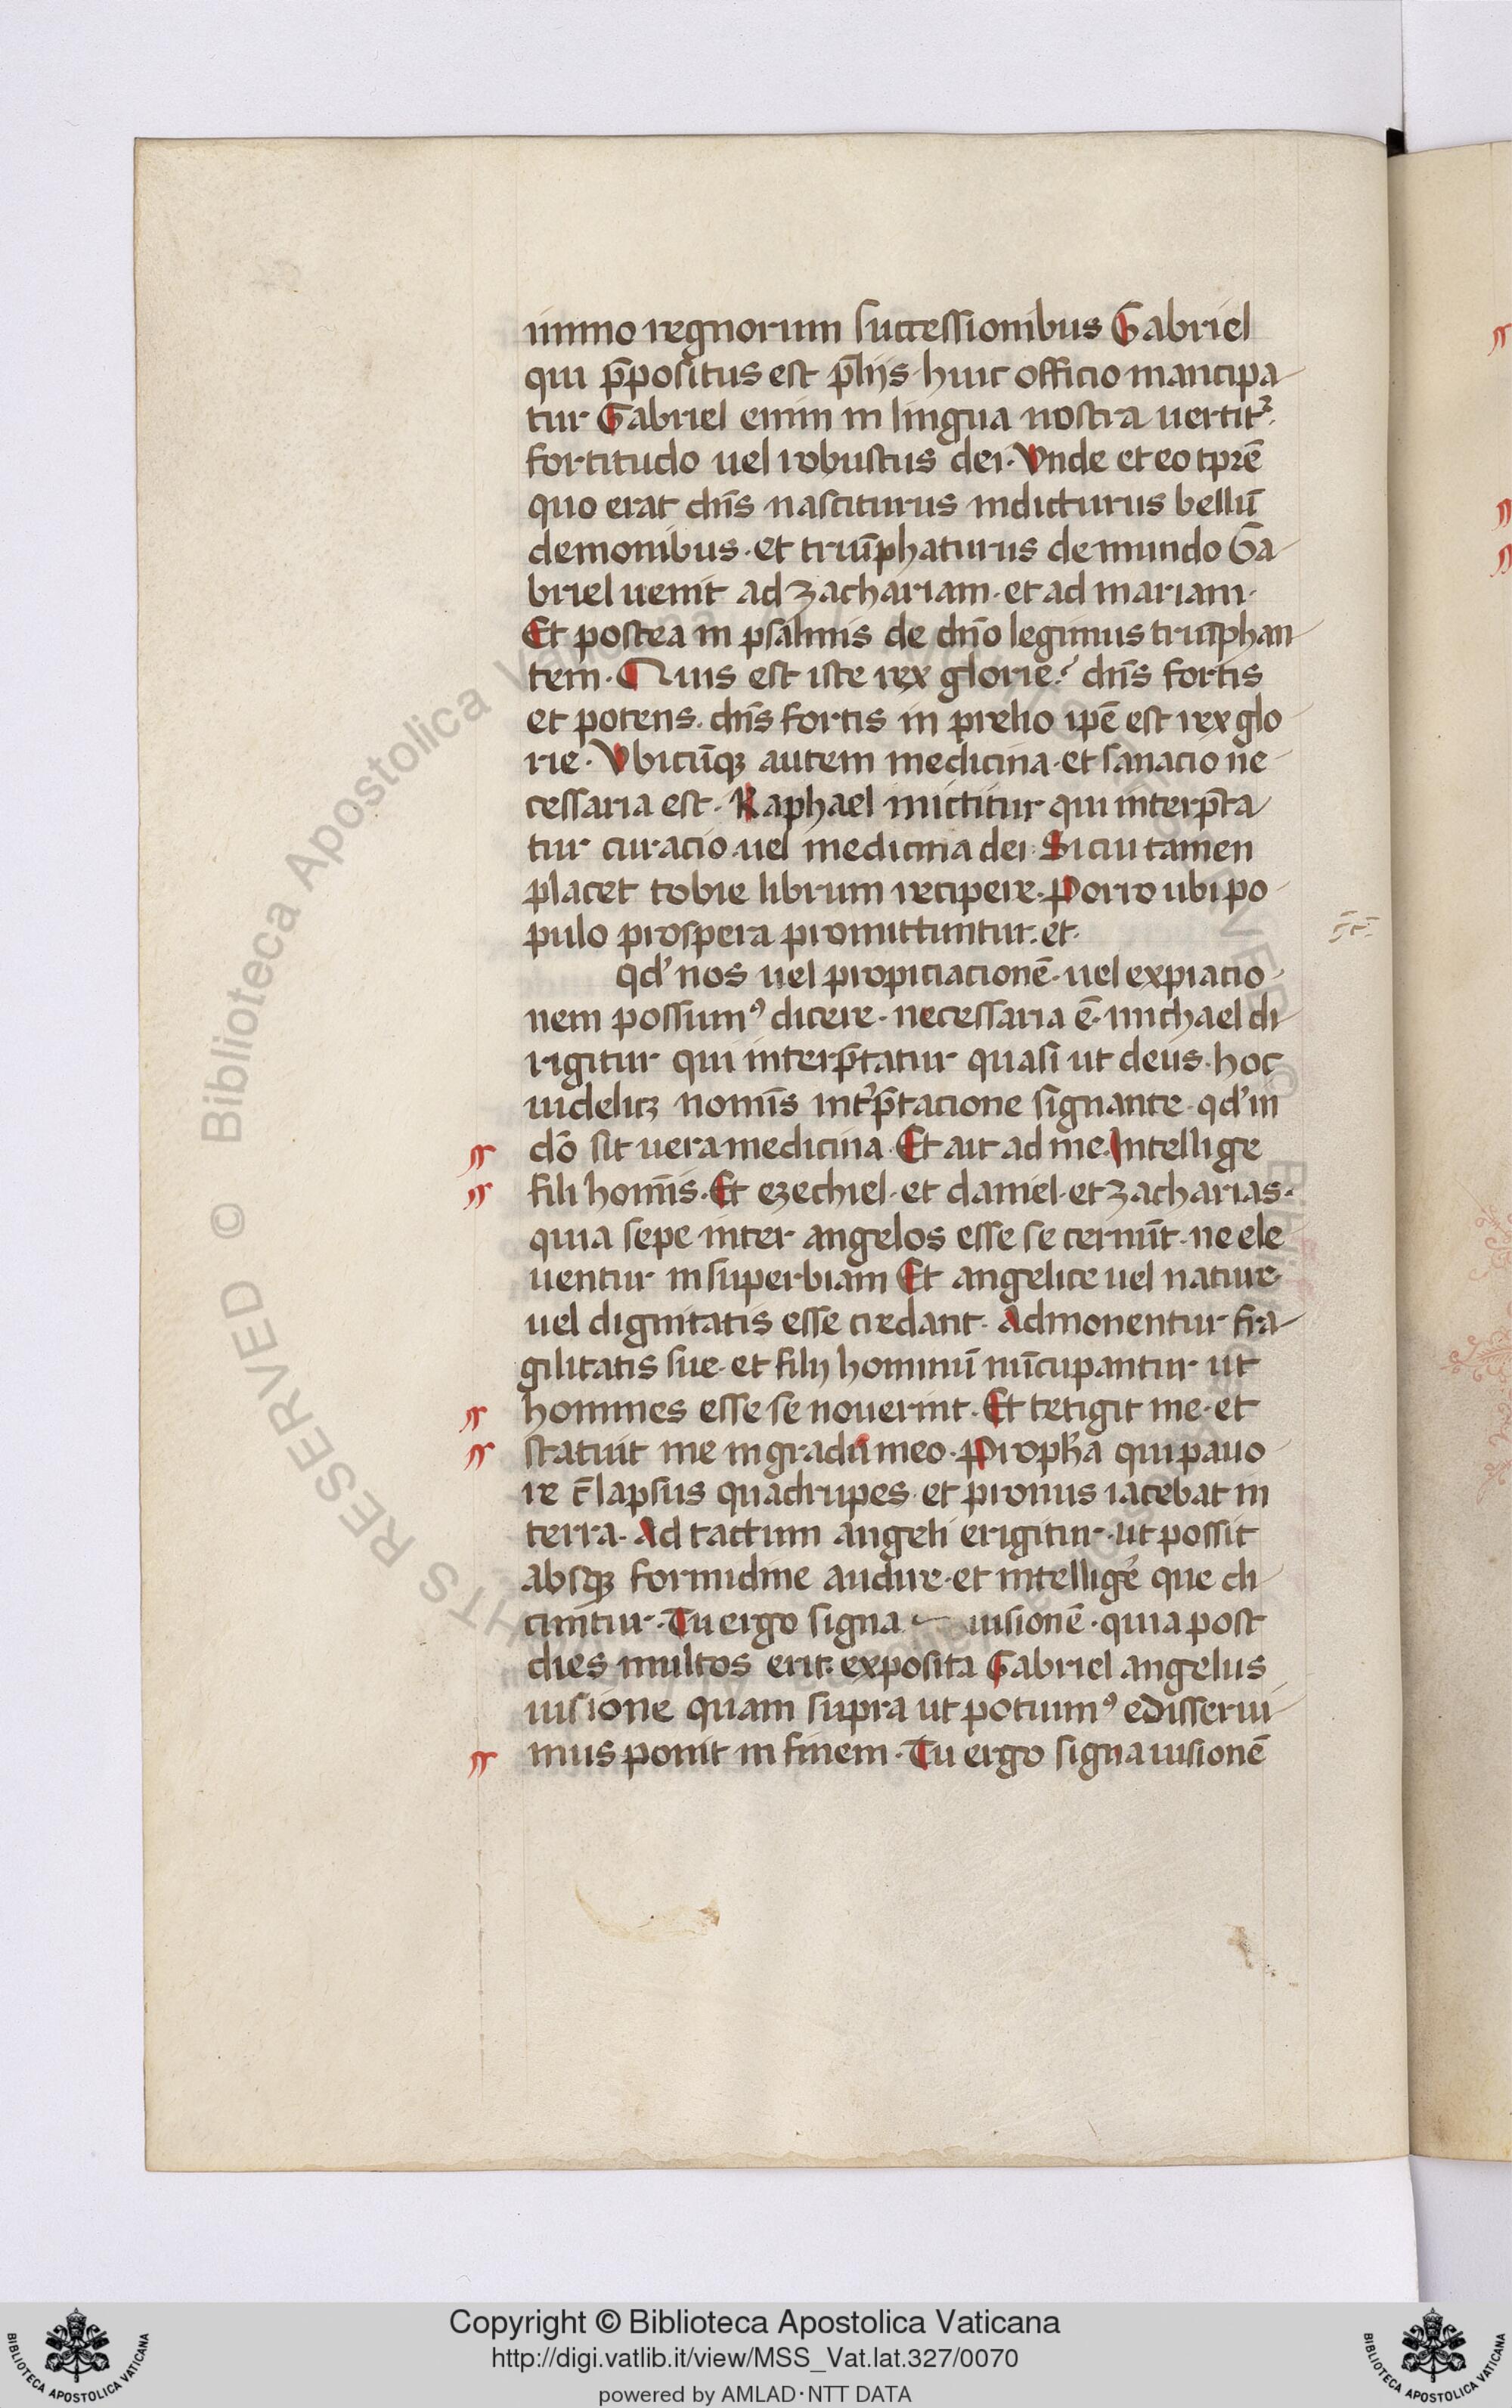 immo regnorum successionibus Gabriel
qui p̄positus est p̄lijs· huic officio mancipa
tur Gabriel enim in lingua nostra uertit᷑·
fortitudo uel robustus dei· Vnde et eo tp̄rē
quo erat dn̄s nasciturus indicturus bellū
demonibus· et triūphaturus de mundo Ga
briel uenit ad zachariam· et ad mariam·
Et postea in psalmis de dn̄o legimus triūphan
tem· Quis est iste rex glorie? dn̄s fortis
et potens· dn̄s fortis in prelio ip̄e est rex glo
rie· Vbicūqꝫ autem medicina· et sanacio ne
cessaria est· Raphael mictitur qui interp̄ta
tur curacio uel medicina dei· Si cui tamen
placet tobie librum recipere· Porro ubi po
pulo prospera promittuntur· et·
qd' nos uel propiciacionē· uel expiacio
nem possumꝰ dicere· necessaria ē· michael di
rigitur qui interp̄tatur quasi ut deus· hoc
uidelicꝫ nomīs int̓p̄tacione signante· qd' in
dō sit uera medicina· Et ait ad me· Intellige
fili homīs· Et ezechiel· et daniel· et zacharias·
quia sepe inter angelos esse se cernūt· ne ele
uentur in superbiam Et angelice uel nature
uel dignitatis esse credant· Admonentur fra
gilitatis sue· et filij hominū nūcupantur ut
homines esse se nouerint· Et tetigit me· et
statuit me in gradu meo· Propħa qui pauo
re c̄lapsus quadrupes et pronus iacebat in
terra· Ad tactum angeli erigitur· ut possit
absqꝫ formidine audire· et intellige̓ que di
cuntur· Tu ergo signa uisionē· quia post
dies multos erit· exposita Gabriel angelus
uisione quam supra ut potuimꝰ edisserui
mus ponit in finem· Tu ergo signa uisionē
Copyright © Biblioteca Apostolica Vaticana
http://digi.vatlib.it/view/MSS_Vat.lat.327/0070
powered by AMLAD·NTT DATA